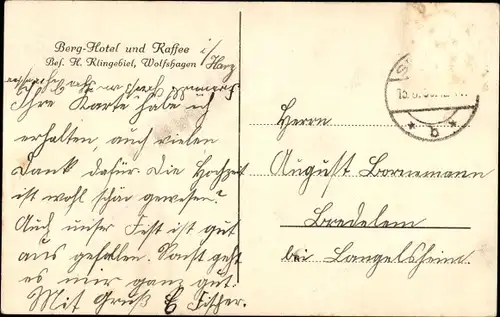 Berg-Hotel und Kaffee
Bes. H. Klingebiel, Wolfshagen i/Harz
Ihre Karte habe ich
erhalten, auch vielen
Dank dafür. Die Hochzeit
ist wohl schön gewesen?
Auch unser Fest ist gut
aus gefallen. Sonst geht
es mir ganz gut.
Mit Gruß E Fischer.
Herrn
August Bornemann
Bredelem
bei Langelsheim.
* b *